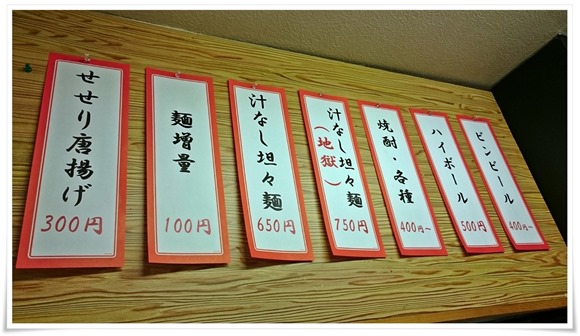 ビンビール
400円~
ハイボール
500円
焼酎・各種
400円~
汁なし坦々麺
(地獄)
750円
汁なし坦々麺
650円
麺増量
100円
せせり唐揚げ
300円